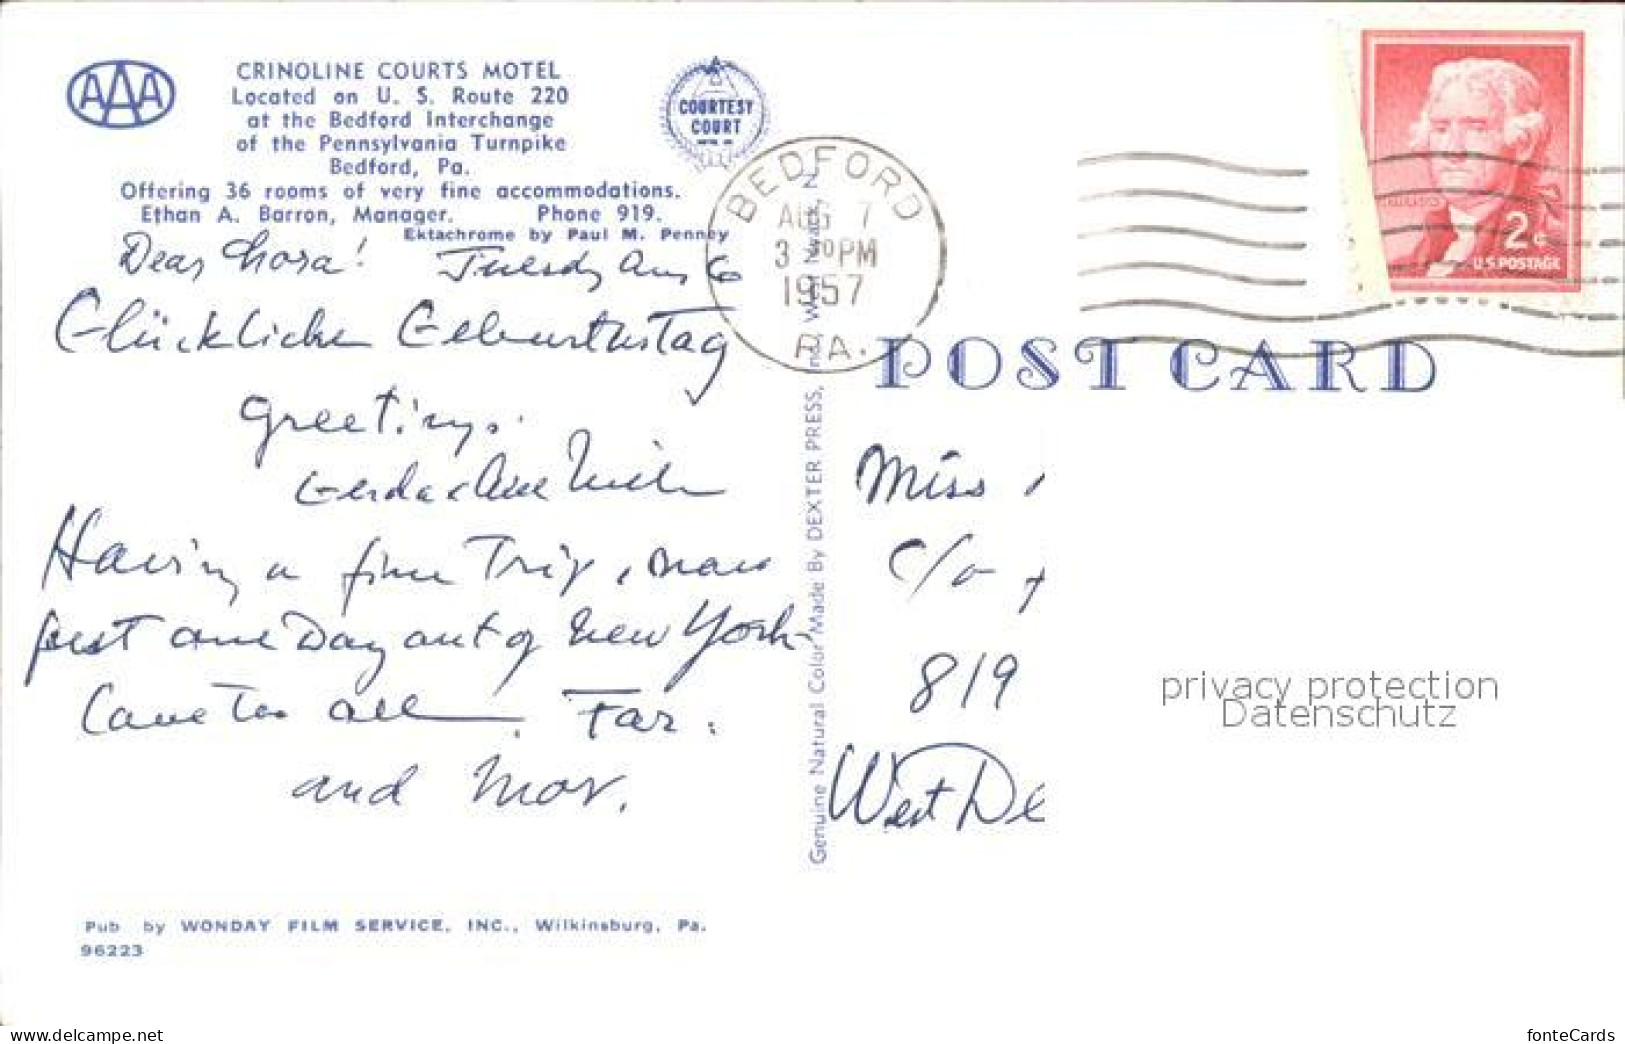 AAA
CRINOLINE COURTS MOTEL
Located on U. S. Route 220
at the Bedford Interchange
of the Pennsylvania Turnpike
Bedford, Pa.
Offering 36 rooms of very fine accommodations.
Ethan A. Barron, Manager. Phone 919.
Ektachrome by Paul M. Penney
COURTESY
COURT
Dear Nora! Tuesday Aug 6
Glückliche Geburtstag
greetings.
Having a fine Trip, now
just one Day out of New York
Love to all.
and
Pub by WONDAY FILM SERVICE, INC., Wilkinsburg, Pa.
96223
Genuine Natural Color Made By DEXTER PRESS, Inc., West Nyack, N
BEDFORD
AUG 7
3 PM
1957
PA.
2¢
U.S. POSTAGE
POST CARD
Miss
c/o
819
West De
privacy protection
Datenschutz
www.delcampe.net
fonteCards